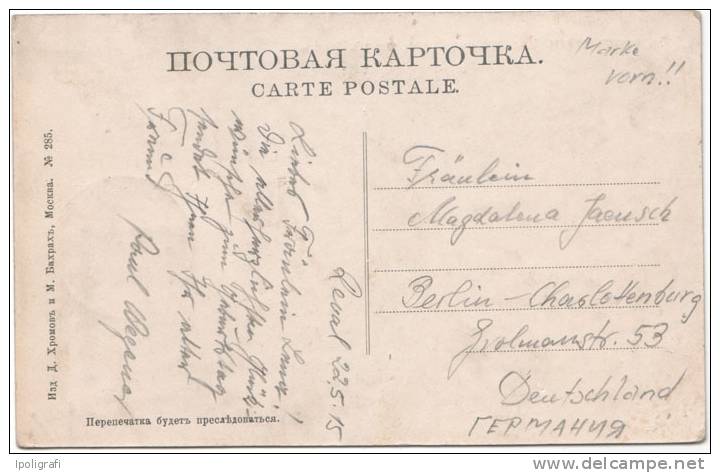 ПОЧТОВАЯ КАРТОЧКА.
CARTE POSTALE.
Marke
vorn!!
Изд Д. Хромовъ и М. Бахрахъ, Москва. № 285.
Reval 22.5.15
Liebes Fräulein Lena!
Die allerherzlichsten Glück-
wünsche zum Geburtstag
sendet Ihnen Ihr alter
Freund
Paul
Fräulein
Magdalena Jaensch
Berlin-Charlottenburg
Grolmanstr. 53
Deutschland
ГЕРМАНИЯ
Перепечатка будетъ преслѣдоваться.
lpoligrafi
www.delcampe.net